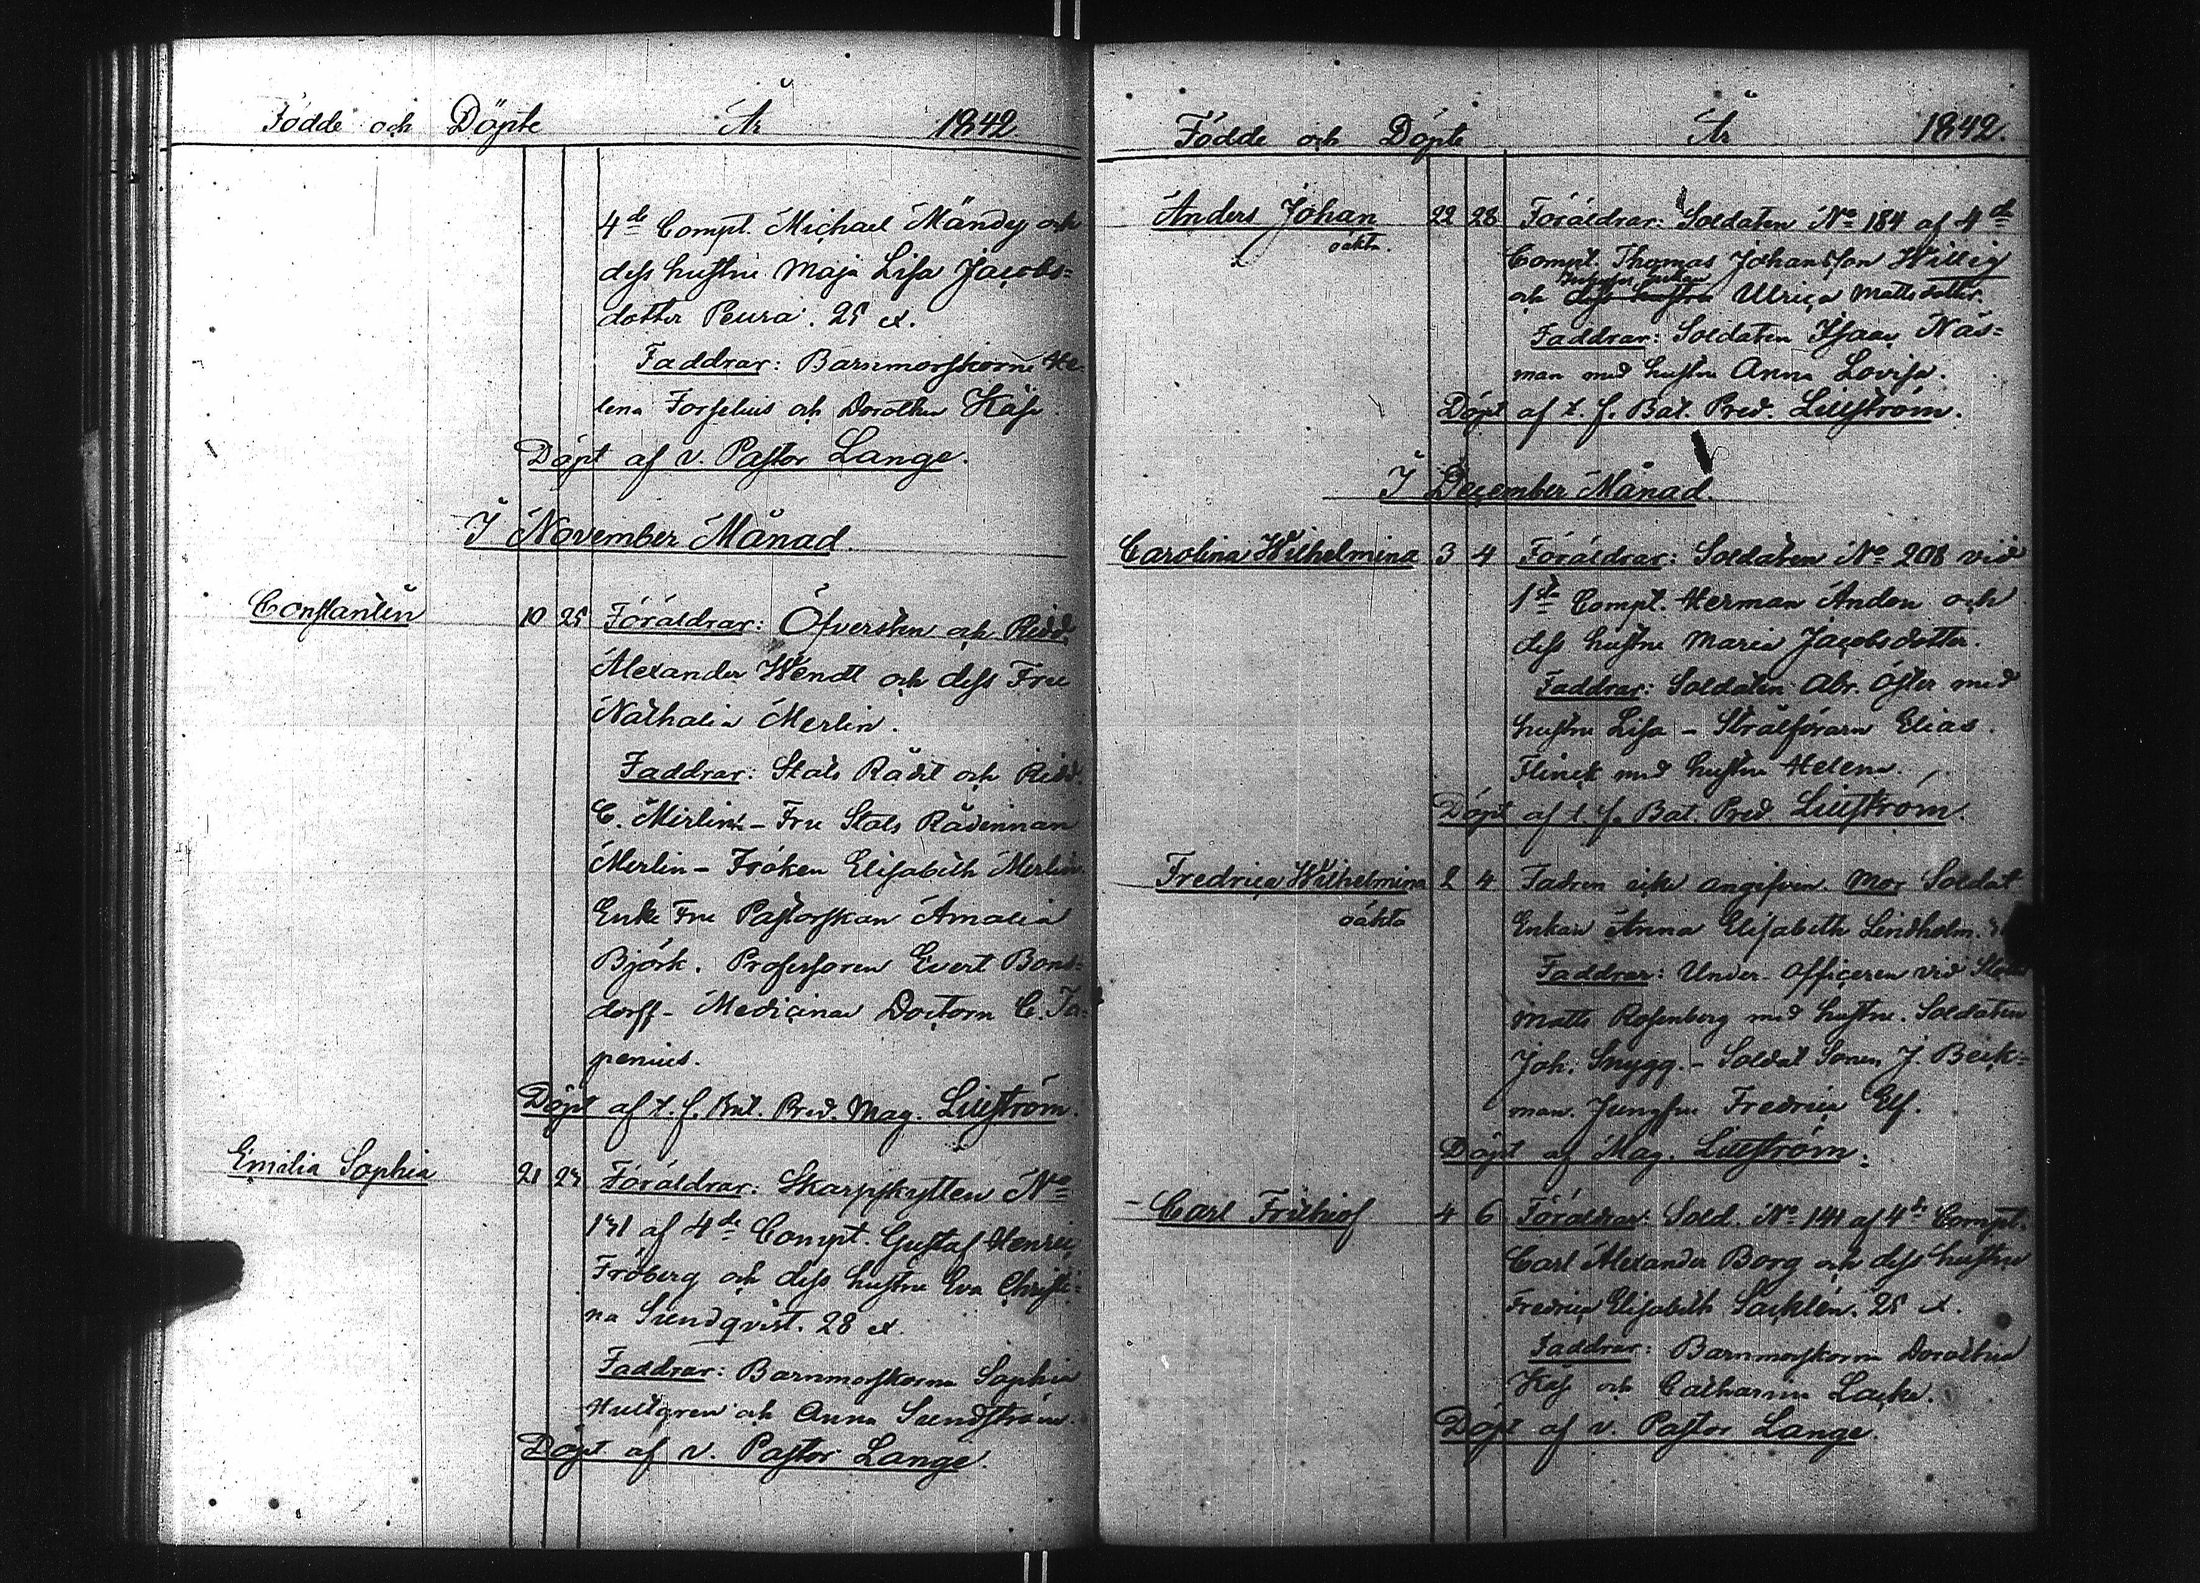 Födde och Döpte År 1842
4de Compt. Michael Mändy och
dess hustru Maja Lisa Jacobs=
dotter Peura. 25 et.
Faddrar: Barnmorskorne He-
lena Forselius och Dorothea Häse.
Döpt af v. Pastor Lange.
I November Månad.
Constantin 10 25 Föräldrar: Öfversten och Ridd.
Alexander Wendt och dess Fru
Nathalia Merlin.
Faddrar: Stats Rådet och Ridd.
C. Merlin - Fru Stats Rådinnan
Merlin - Fröken Elisabeth Merlin
Enke Fru Pastorskan Amalia
Björk. Professoren Evert Bons=
dorff - Medicinae Doctorn C.
penius.
Döpt af t. f. Bat. Pred. Mag. Liliström.
Emilia Sophia 21 27 Föräldrar: Skarpskytten No
131 af 4de Compt. Gustaf Henric
Fröberg och dess hustru Eva Christi=
na Sundqvist. 28 et.
Faddrar: Barnmorskorna Sophia
Hultgren och Anna Sundström.
Döpt af v. Pastor Lange.
Födde och Döpte År 1842.
Anders Johan 22 28 Föräldrar: Soldaten No 184 af 4de
oäkta.
Compt. Thomas Johansson Willig
och dess hustru Ulrica Mattsdotter.
Faddrar: Soldaten Isaac Näs=
man med hustru Anna Lovisa.
Döpt af t. f. Bat. Pred. Liliström.
I December Månad.
Carolina Wilhelmina 3 4 Föräldrar: Soldaten No 208 vid
1sta Compt. Herman Andon och
dess hustru Maria Jacobsdotter.
Faddrar: Soldaten Abr. Öster med
hustru Lisa - Elias
Flinck med hustru Helena.
Döpt af t. f. Bat. Pred Liliström.
Fredrica Wilhelmina 2 4 Fadren icke angifven. Mor Soldat
oäkta
Enkan Anna Elisabeth Lindholm.
Faddrar: Under-officeren vid
Matts Rosenberg med hustru. Soldaten
Joh: Snygg. - Soldat Sonen J. Beck=
man. Jungfru Fredrica Elf.
Döpt af Mag. Liliström.
- Carl Frithiof 4 6 Föräldrar: Sold. No 141 af 4de Compt.
Carl Alexander Borg och dess hustru
Fredrica Elisabeth Sacklén. 25 et.
Faddrar: Barnmorskorna Dorothea
Häse och Catharina Lacke.
Döpt af v. Pastor Lange.